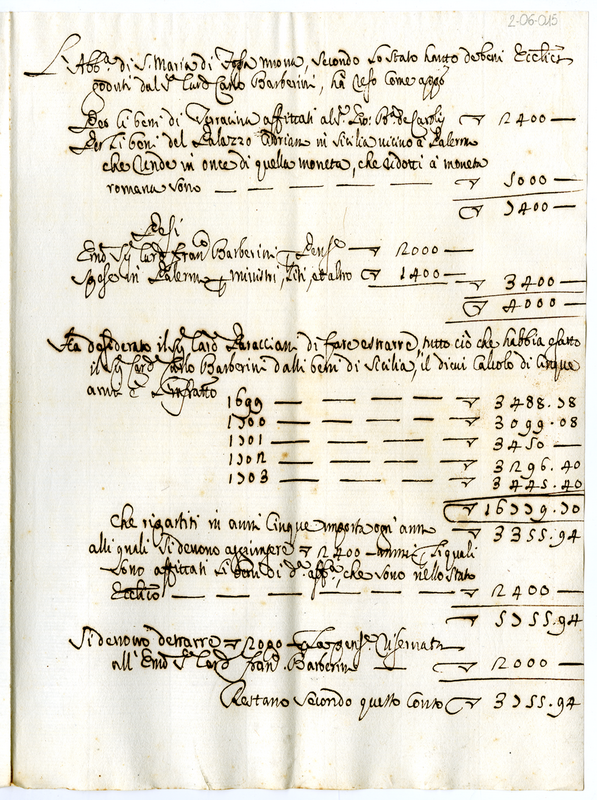 2-06-015
L'Abb.ª di S. Maria di Terra nuova, secondo lo stato hanto de beni Ecclici
goduti dal S.r Card Carlo Barberini, hà reso come app.o
Per li beni di Terracina affittati al S.r Gio: B.a de Carolis ▽ 2400 —
Per li beni del Palazzo Adriano in Sicilia vicino à Palermo
che rende in once di quella moneta, che ridotti à moneta
romana sono — — — — — ▽ 5000 —
▽ 7400 —
Pesi
Emo Sig Card Fran.co Barberini p Pens.e — ▽ 2000 —
Spese in Palermo p ministri, liti, et altro ▽ 1400 — ▽ 3400 —
▽ 4000 —
Ha desiderato il Sig Card Paracciani di fare estrarre, tutto ciò che habbia esatto
il Sig Card Carlo Barberini dalli beni di Sicilia, il di cui calcolo di cinque
anni è l'infratto
1699 — — — — ▽ 3488.78
1700 — — — — ▽ 3099.08
1701 — — — — ▽ 3450 —
1702 — — — — ▽ 3296.40
1703 — — — — ▽ 3445.40
▽ 16779.70
Che ripartiti in anni cinque importa ogn'anno ▽ 3355.94
alli quali si devono aggiungere ▽ 2400 annui p li quali
sono affittati li beni di d.a Abb.a, che sono nello stato
Ecclico — — — — — ▽ 2400 —
▽ 5755.94
Si devono detrarre ▽ 2000 p la pens.e riservata
all'Emo S.r Card Fran.co Barberini — ▽ 2000 —
Restano secondo questo conto ▽ 3755.94